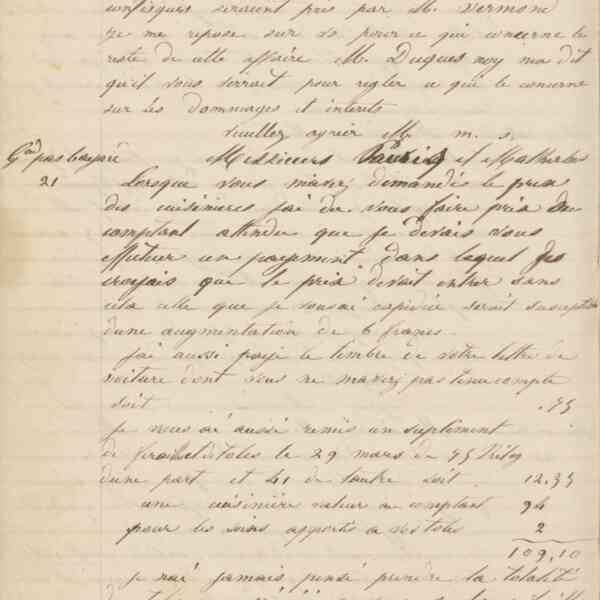 confisqués seraient pris par M. Vermond
Je me repose sur vs pour ce qui concerne le
reste de cette affaire M. Dugues noy ma dit
quil vous verrait pour regler ce qui le concerne
sur les dommages et interets
Veuillez agréer M. m. s.
Gd pas Messieurs et
21 Lorsque vous mavez demandés le prix
des cuisinieres jai du vous faire prix du
comptant attendu que je devais vous
effectuer un payement dans lequel Je
croyais que le prix devait entrer sans
cela celle que je vous ai expediée serait susceptible
dune augmentation de 6 francs
Jai aussi payé le timbre de votre lettre de
voiture dont vous ne mavez pas tenu compte
soit .75
Je vous ai aussi remis un suplement
de de toles le 29 mars de 75 Kilog
dune part et 41 de lautre soit 12.35
une cuisinière valeur au comptant 94
pour les soins apportés a vos toles 2
109,10
je nai jamais pensé prendre la totalité